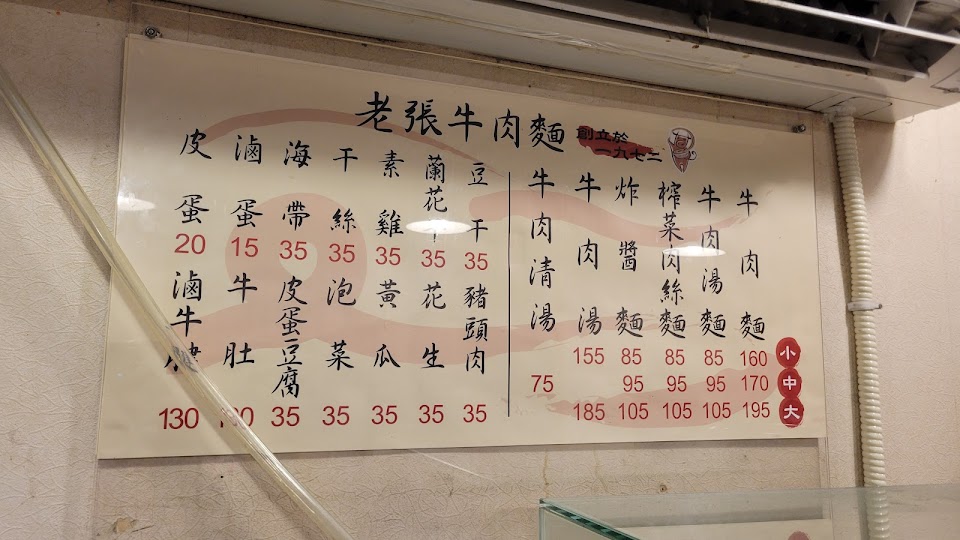 老張牛肉麵
創立於
一九七二
小
中
大
牛肉麵
160
170
195
牛肉湯麵
85
95
105
榨菜肉絲麵
85
95
105
炸醬麵
85
95
105
牛肉湯
155
185
牛肉清湯
75
豆干
35
蘭花干
35
素雞
35
干絲
35
海帶
35
滷蛋
15
皮蛋
20
豬頭肉
35
花生
35
黃瓜
35
泡菜
35
皮蛋豆腐
35
牛肚
滷牛
130